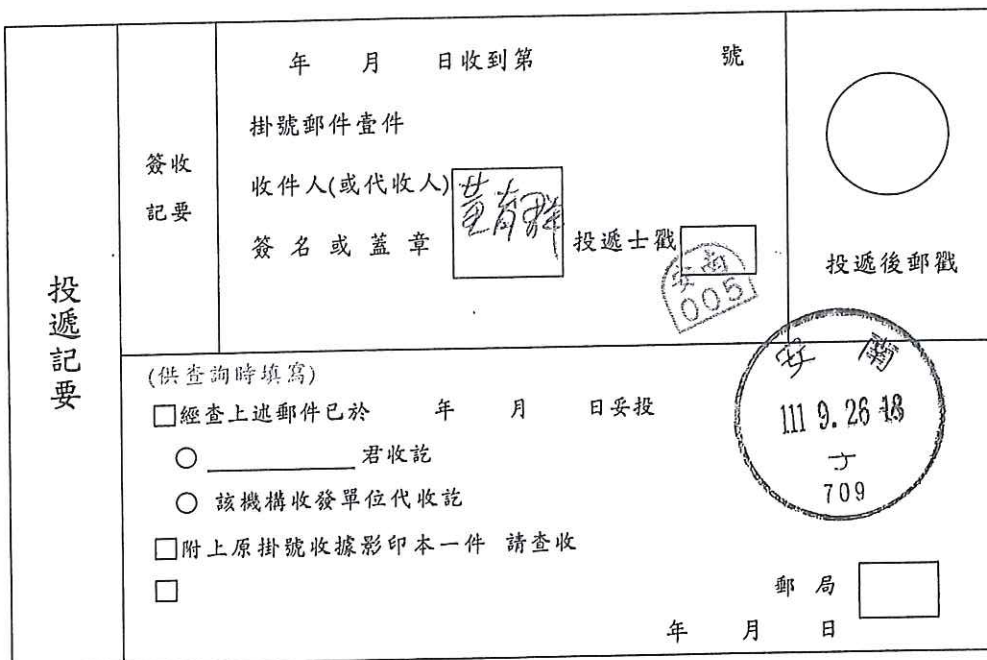 投遞記要
簽收
記要
年 月 日收到第 號
掛號郵件壹件
收件人(或代收人)
簽名或蓋章
投遞士戳
安南
005
投遞後郵戳
安南
111 9.26 18
709
(供查詢時填寫)
□經查上述郵件已於 年 月 日妥投
○ ________ 君收訖
○ 該機構收發單位代收訖
□附上原掛號收據影印本一件 請查收
□
郵局
年 月 日